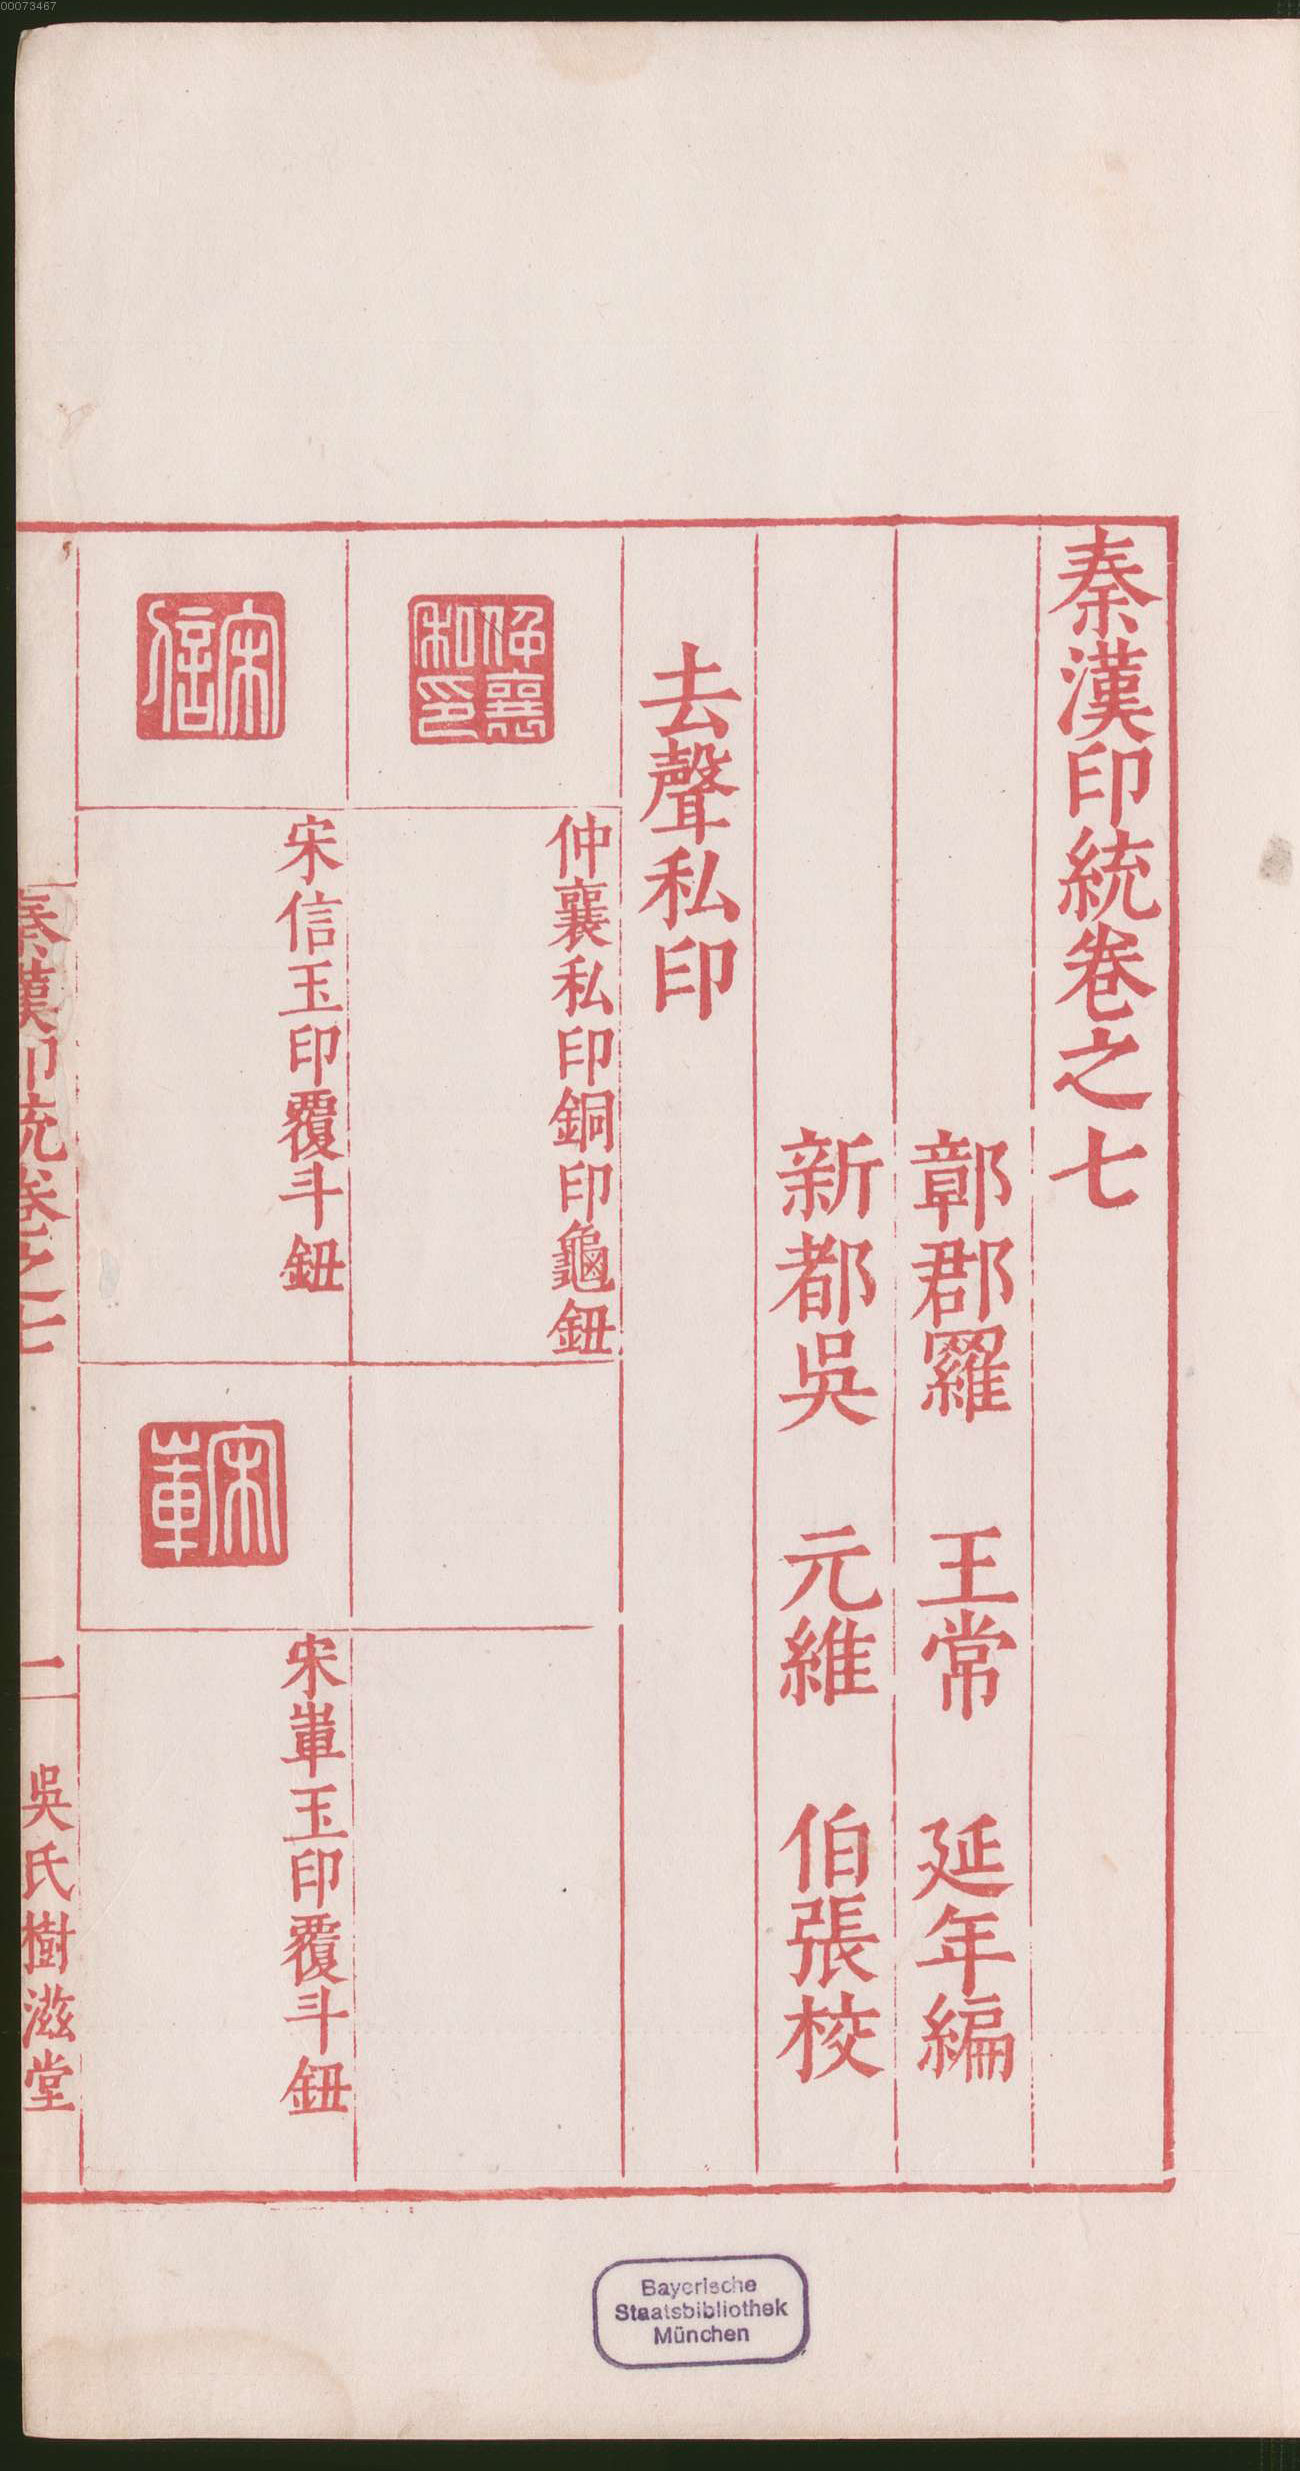 00073467
秦漢印統卷之七
鄣郡羅 王常 延年編
新都吳 元維 伯張校
去聲私印
仲襄私印
仲襄私印印銅印龜鈕
宋信
宋信玉印覆斗鈕
宋𨊠玉印覆斗鈕
秦漢印統卷之七
一
吳氏樹滋堂
Bayerische
Staatsbibliothek
München